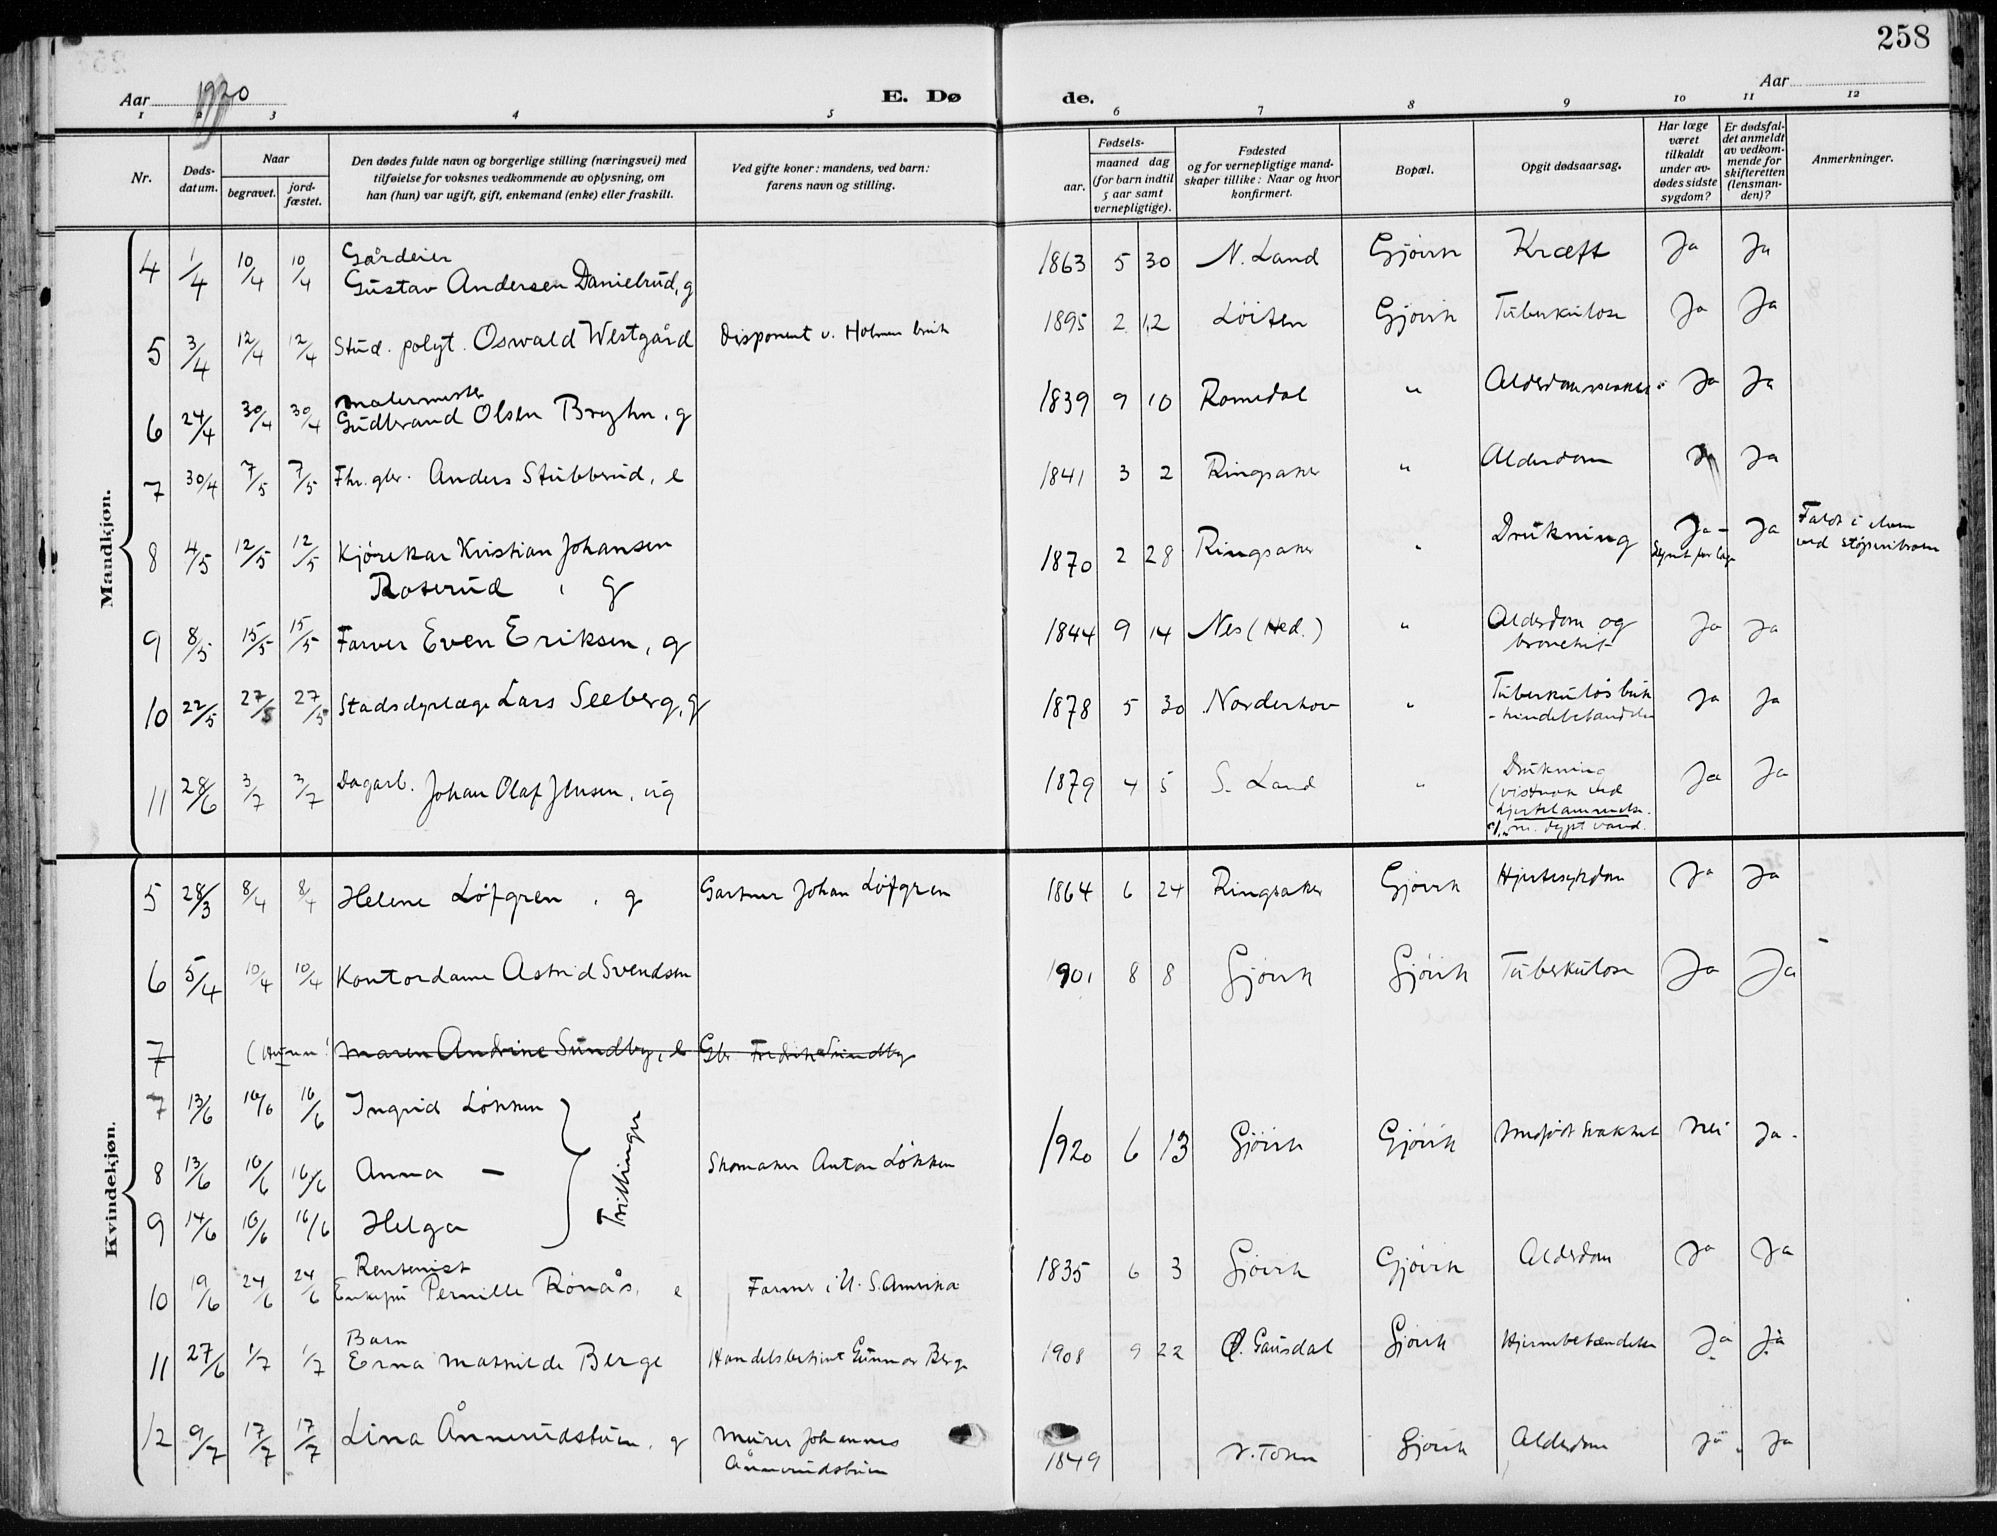 258
Aar 1920
E. Dø
de.
Aar
1 2 3 4 5 6 7 8 9 10 11 12
Nr.
Døds-
datum.
Naar
begravet.
jord-
fæstet.
Den dødes fulde navn og borgerlige stilling (næringsvei) med
tilføielse for voksnes vedkommende av oplysning, om
han (hun) var ugift, gift, enkemand (enke) eller fraskilt.
Ved gifte koner: mandens, ved barn:
farens navn og stilling.
Fødsels-
aar.
maaned dag
(for barn indtil
5 aar samt
vernepligtige).
Fødested
og for vernepligtige mand-
skaper tillike: Naar og hvor
konfirmert.
Bopæl.
Opgit dødsaarsag.
Har læge
været
tilkaldt
under av-
dødes sidste
sygdom?
Er dødsfal-
det anmeldt
av vedkom-
mende for
skifteretten
(lensman-
den)?
Anmerkninger.
Mandkjøn.
Gårdeier
4 1/4 10/4 10/4 Gustav Andersen Danielrud, g 1863 5 30 N. Land Gjøvik Kræft Ja Ja
5 3/4 12/4 12/4 Stud. polyt. Oswald Westgård Disponent v. Holmen bruk 1895 2 12 Løiten Gjøvik Tuberkulose Ja Ja
malermester
6 24/4 30/4 30/4 Gudbrand Olsen Bryhn, g 1839 9 10 Romedal " Ja Ja
7 30/4 7/5 7/5 Fhv. gbr. Anders Stubberud, e 1841 3 2 Ringsaker " Alderdom Ja Ja
8 4/5 12/5 12/5 Kjørekar Kristian Johansen
Roterud, g 1870 2 28 Ringsaker " Drukning Ja - Ja
Faldt i elven
ved
9 8/5 15/5 15/5 Farver Even Eriksen, g 1844 9 14 Nes (Hed.) " Alderdom og
bronchit Ja Ja
10 22/5 27/5 27/5 Stadsdyrlæge Lars Seeberg, g 1878 5 30 Norderhov " Tuberkuløs buk
-hindebetændelse Ja Ja
11 28/6 3/7 3/7 Dagarb. Johan Olaf Jensen, ug 1879 4 5 S. Land " Drukning
(vistnok ved
hjertelammelse.
m. dypt vand. Ja Ja
Kvindekjøn.
5 28/3 8/4 8/4 Helene Løfgren, g Gartner Johan Løfgren 1864 6 24 Ringsaker Gjøvik Hjertesykdom Ja Ja
6 5/4 10/4 10/4 Kontordame Astrid Svendsen 1901 8 8 Gjøvik Gjøvik Tuberkulose Ja Ja
7 (Hunn! Maren Andrine Sundby, e Gbr. Fredrik Sundby
7 13/6 16/6 16/6 Ingrid Løkken
8 13/6 16/6 16/6 Anna - Skomaker Anton Løkken 1920 6 13 Gjøvik Gjøvik Medfødt svakhet Nei Ja.
9 14/6 16/6 16/6 Helga
Trillinger
Rentenist
10 19/6 24/6 24/6 Enkefru Pernille Rønås, e Farmer i U. S. Amerika 1835 6 3 Gjøvik Gjøvik Alderdom Ja Ja
Barn
11 27/6 1/7 1/7 Erna Mathilde Berge Handelsbetjent Gunnar Berge 1908 9 22 Ø. Gausdal Gjøvik Hjernebetændelse Ja Ja
12 9/7 17/7 17/7 Lina Ånnerudstuen, g Murer Johannes
Ånnerudstuen 1849 V. Toten Gjøvik Alderdom Ja Ja